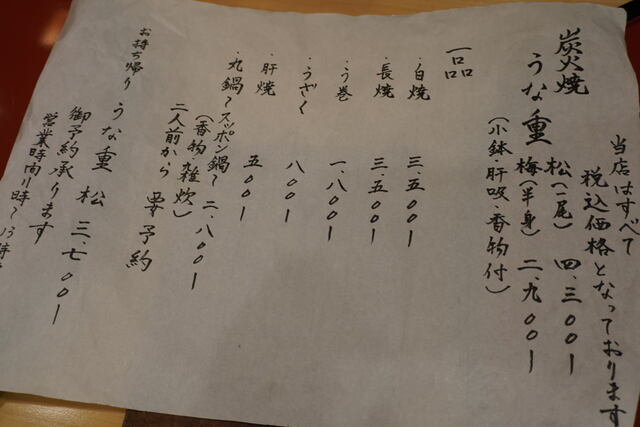 当店はすべて
税込価格となっております
炭火焼
うな重 松(一尾) 四、三〇〇ー
梅(半身) 二、九〇〇ー
(小鉢・肝吸・香物付)
一品
・白焼 三、五〇〇ー
・長焼 三、五〇〇ー
・う巻 一、八〇〇ー
・うざく 八〇〇ー
・肝焼 五〇〇ー
・丸鍋〜スッポン鍋〜 二、八〇〇ー
(香物・雑炊)
二人前から 要予約
お持ち帰り
うな重 松 三、七〇〇ー
御予約承ります
営業時間11時〜13時